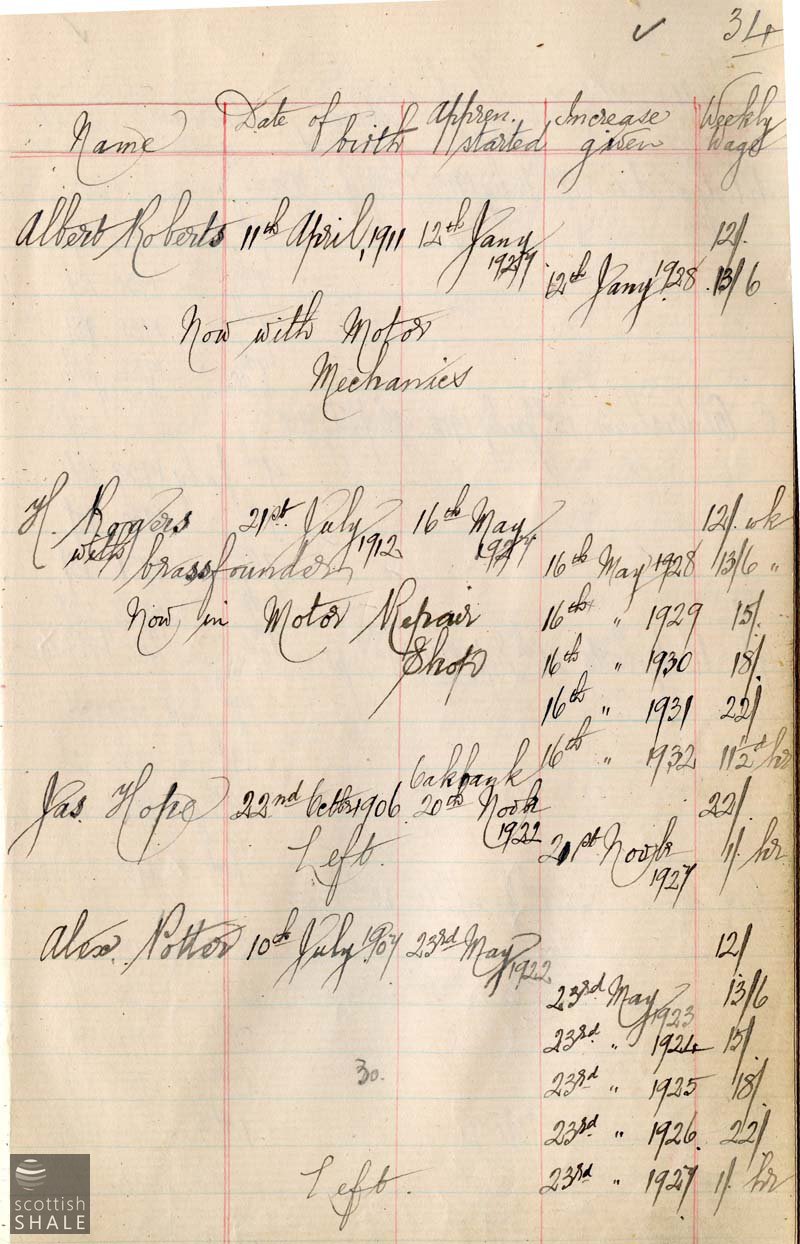 34
Name Date of birth Appren. started Increase given Weekly Wage
Albert Roberts 11th April, 1911 12th Jany 1927 12/.
12th Jany 1928 13/6
Now with Motor
Mechanics
H. Rogers 21st July 1912 16th May 1927 12/. wk
with brassfounder 16th May 1928 13/6 "
Now in Motor Repair 16th " 1929 15/.
Shop 16th " 1930 18/.
16th " 1931 22/
16th " 1932 11 1/2d hr
Oakbank
Jas. Hope 22nd Octbr 1906 20th Novbr 1922 22/.
Left. 21st Novbr 1927 1/. hr
Alex. Potter 10th July 1907 23rd May 1922 12/
23rd May 1923 13/6
23rd " 1924 15/.
30.
23rd " 1925 18/.
23rd " 1926 22/
Left. 23rd " 1927 1/. hr
scottish
SHALE